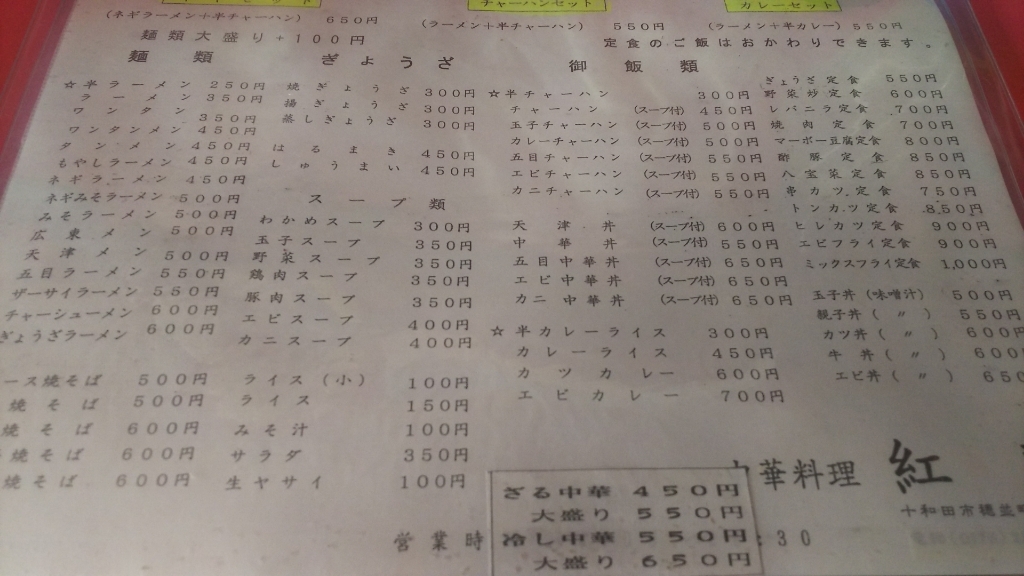 チャーハンセット
カレーセット
(ネギラーメン+半チャーハン) 650円
(ラーメン+半チャーハン) 550円
(ラーメン+半カレー) 550円
麺類大盛り+100円
定食のご飯はおかわりできます。
麺類
☆半ラーメン 250円
ラーメン 350円
ワンタン 350円
ワンタンメン 450円
タンメン 450円
もやしラーメン 450円
ネギラーメン 450円
ネギみそラーメン 500円
みそラーメン 500円
広東メン 500円
天津メン 500円
五目ラーメン 550円
ザーサイラーメン 550円
チャーシューメン 600円
ぎょうざラーメン 600円
ース焼そば 500円
焼そば 500円
焼そば 600円
焼そば 600円
焼そば 600円
ぎょうざ
焼ぎょうざ 300円
揚ぎょうざ 300円
蒸しぎょうざ 300円
はるまき 450円
しゅうまい 450円
スープ類
わかめスープ 300円
玉子スープ 350円
野菜スープ 350円
鶏肉スープ 350円
豚肉スープ 350円
エビスープ 400円
カニスープ 400円
ライス(小) 100円
ライス 150円
みそ汁 100円
サラダ 350円
生ヤサイ 100円
御飯類
☆半チャーハン 300円
チャーハン (スープ付) 450円
玉子チャーハン (スープ付) 500円
カレーチャーハン (スープ付) 500円
五目チャーハン (スープ付) 550円
エビチャーハン (スープ付) 550円
カニチャーハン (スープ付) 550円
天津丼 (スープ付) 600円
中華丼 (スープ付) 550円
五目中華丼 (スープ付) 650円
エビ中華丼 (スープ付) 650円
カニ中華丼 (スープ付) 650円
☆半カレーライス 300円
カレーライス 450円
カツカレー 600円
エビカレー 700円
ぎょうざ定食 550円
野菜炒定食 600円
レバニラ定食 700円
焼肉定食 700円
マーボー豆腐定食 800円
酢豚定食 850円
八宝菜定食 850円
串カツ定食 750円
トンカツ定食 850円
ヒレカツ定食 900円
エビフライ定食 900円
ミックスフライ定食 1,000円
玉子丼(味噌汁) 500円
親子丼(〃) 550円
カツ丼(〃) 600円
牛丼(〃) 600
エビ丼(〃) 650
ざる中華 450円
大盛り 550円
冷し中華 550円
大盛り 650円
華料理 紅
十和田市穂並町
営業時
:30